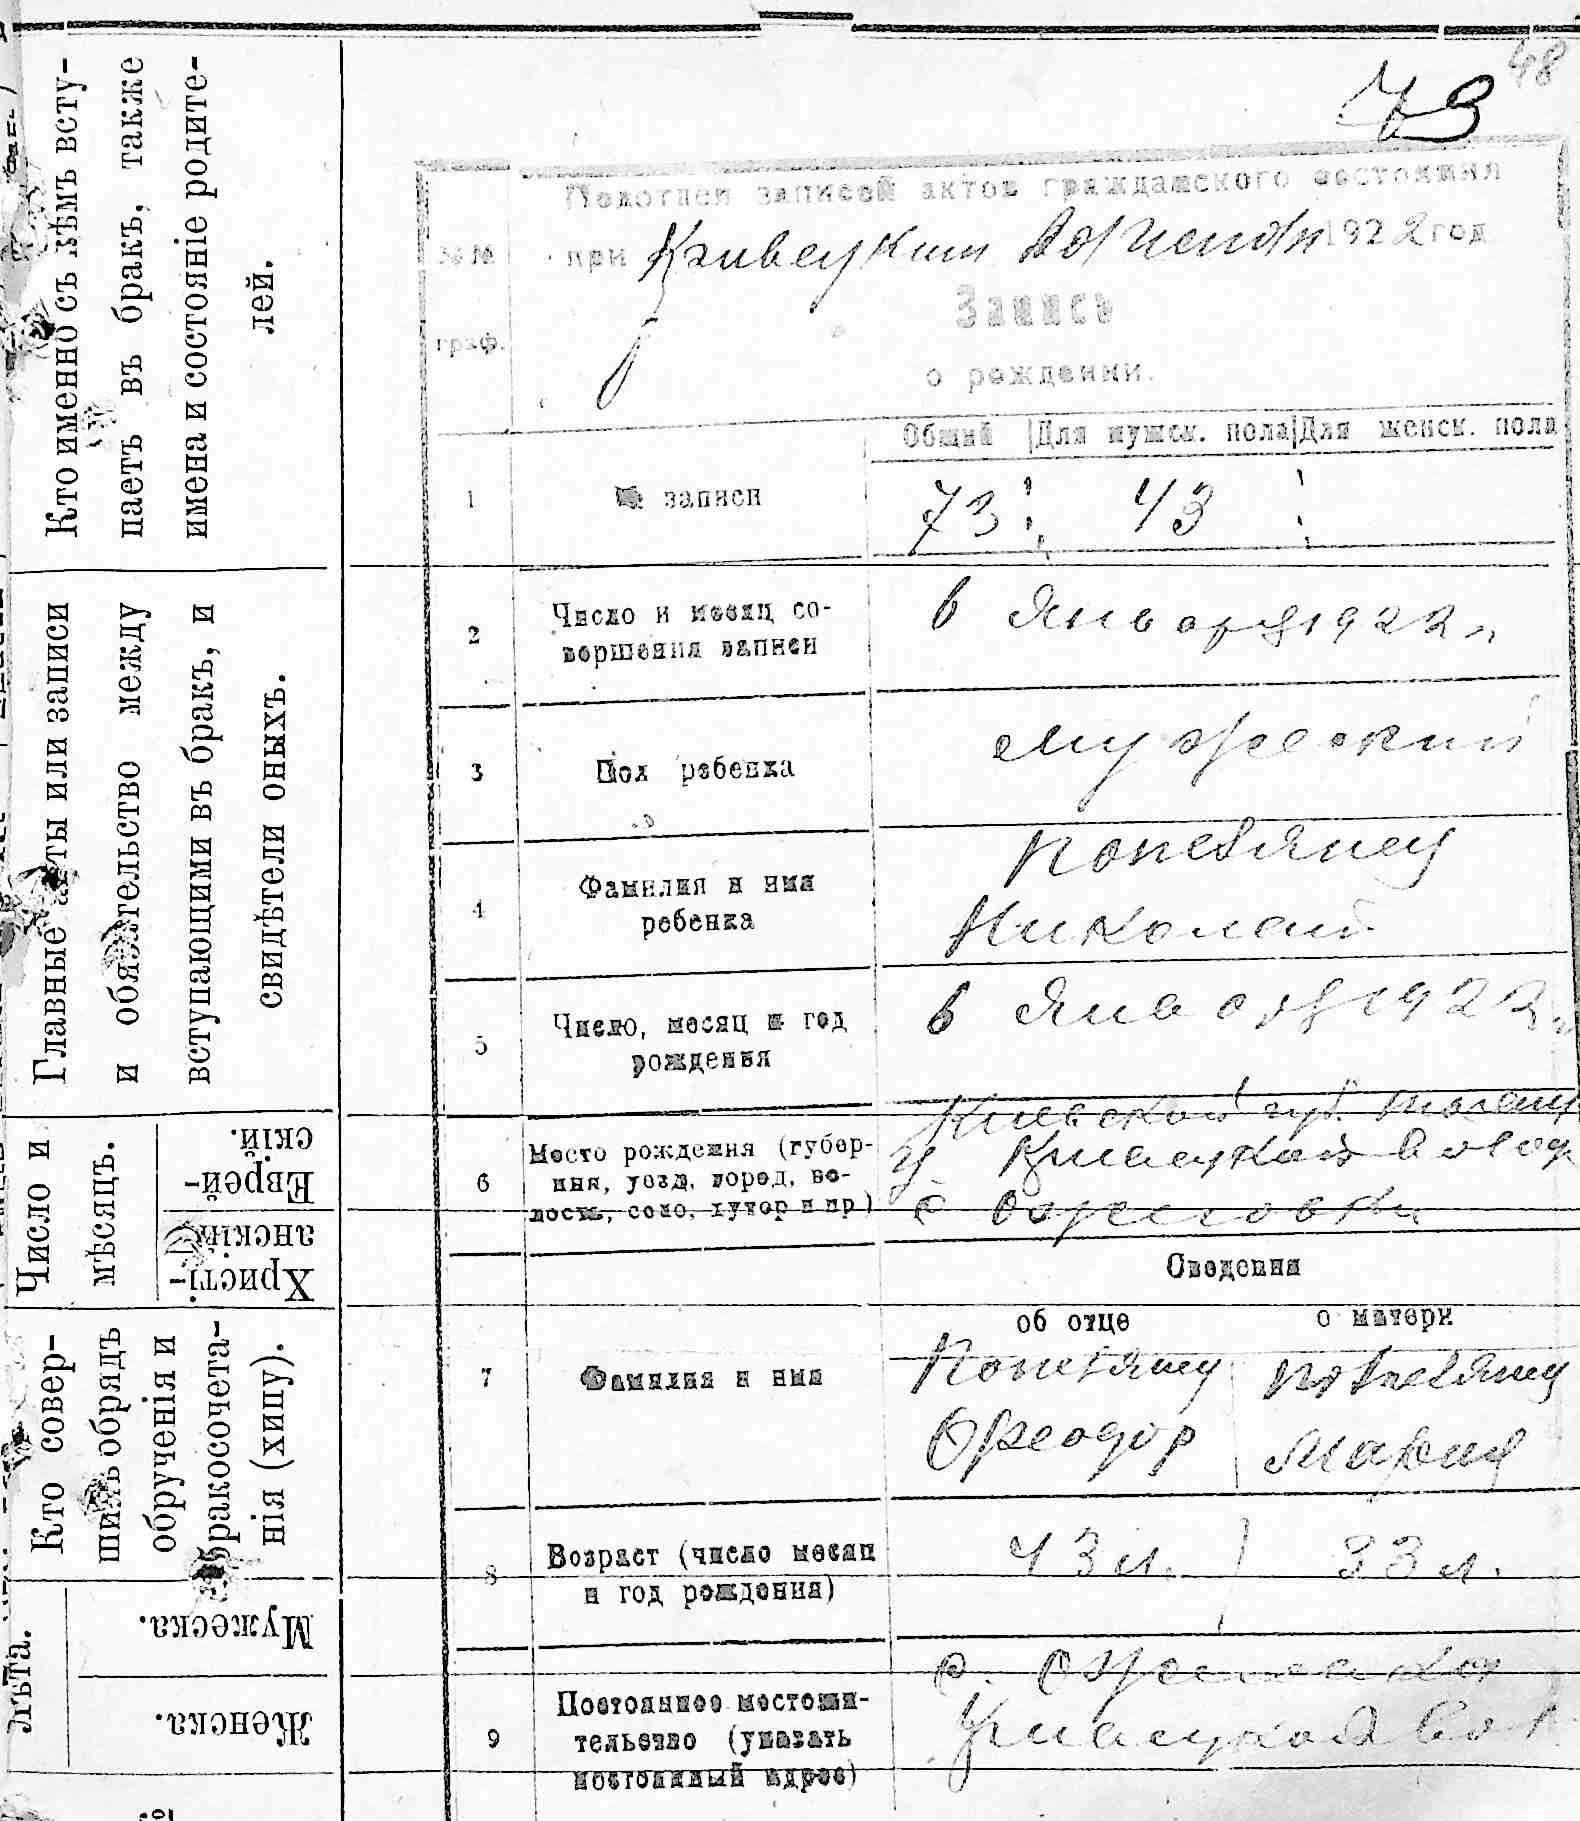 48
73
Кто именно съ кѣмъ всту-
паетъ въ бракъ, также
имена и состояніе родите-
лей.
Главные акты или записи
и обязательство между
вступающими въ бракъ, и
свидѣтели оныхъ.
Число и
мѣсяцъ.
Еврей-
скій.
Христі-
анскій.
Кто совер-
шилъ обрядъ
обрученія и
бракосочета-
нія (хипу).
Лѣта.
Мужеска.
Женска.
записей актов гражданского состояния
№№ при 1922 год
граф.
Запись
о рождении.
Общий Для мужск. пола Для женск. пола
1 № записи 73 43
2 Число и месяц со-
вершения записи
6 Января 1922 г.
3 Пол ребенка мужеский
4 Фамилия и имя
ребенка
Николай
5 Число, месяц и год
рождения
6 Января 1922 г.
6 Место рождения (губер-
ния, уезд, город, во-
лость, село, хутор и пр)
Киевской губ.
у
с
Сведения
об отце о матери
7 Фамилия и имя
Феодор Мария
8 Возраст (число месяц
и год рождения)
43 л. 33 л.
9 Постоянное местожи-
тельство (указать
постоянный адрес)
с.